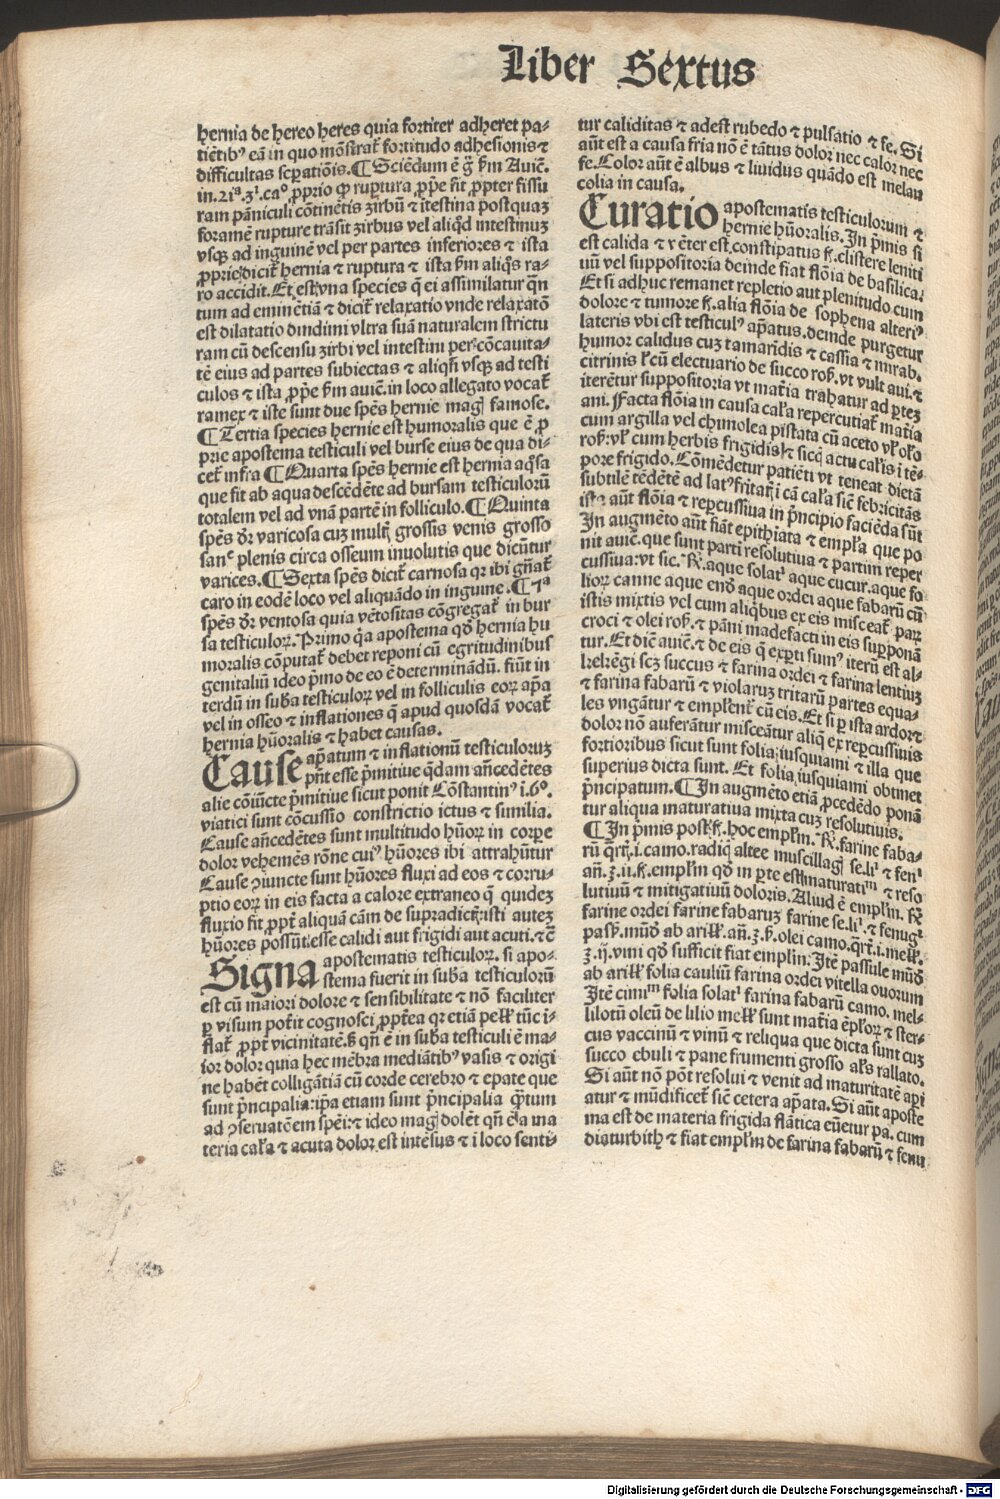 Liber Sextus
hernia de hereo heres quia fortiter adheret pa-
tiẽtibꝰ eã in quo mõstrat᷑ fortitudo adhesionis ⁊
difficultas seꝑatiõis. ¶ Sciẽdum ẽ g̃ ẜm Auic̃.
in .21ª. 3ⁱ. caº ꝓprio ꝙ ruptura ꝓp̃e fit ꝓpter fissu
ram pãniculi cõtinẽtis zirbũ ⁊ ĩtestina postquaꝫ
foramẽ rupture trãsit zirbus vel aliq̃d intestinuꝫ
vsqꝫ ad inguinẽ vel per partes inferiores ⁊ ista
ꝓprie dicit᷑ hernia ⁊ ruptura ⁊ ista ẜm aliq̃s ra-
ro accidit. Et est vna species q̃ ei assimilatur q̃n
tum ad eminẽtiã ⁊ dicit᷑ relaxatio vnde relaxatõ
est dilatatio dindimi vltra suã naturalem strictu
ram cũ descensu zirbi vel intestini per cõcauita-
tẽ eius ad partes subiectas ⁊ aliqñ vsqꝫ ad testi
culos ⁊ ista ꝓp̃e ẜm auic̃. in loco allegato vocat᷑
ramex ⁊ iste sunt due sp̃es hernie mag᷑ famose.
¶ Tertia species hernie est humoralis que ẽ ꝓ
prie apostema testiculi vel burse eius de qua di-
cet᷑ infra ¶ Quarta sp̃es hernie est hernia aq̃sa
que fit ab aqua descẽdẽte ad bursam testiculorũ
totalem vel ad vnã partẽ in folliculo. ¶ Quinta
sp̃es dr̃ varicosa cuꝫ mult᷑ grossis venis grosso
sanᵉ plenis circa osseum inuolutis que dicũtur
varices. ¶ Sexta sp̃es dicit᷑ carnosa qꝛ ibi gñat᷑
caro in eodẽ loco vel aliquãdo in inguine. ¶ 7ª
sp̃es dr̃ ventosa quia vẽtositas cõgregat᷑ in bur
sa testiculoꝝ. Primo q̃a apostema qð hernia hu
moralis cõputat᷑ debet reponi cũ egritudinibus
genitaliũ ideo p̃mo de eo ẽ determinãdũ. fiũt in
terdũ in sub̃a testiculoꝝ vel in folliculis eoꝝ ap̃a
vel in osseo ⁊ inflationes q̃ apud quosdã vocat᷑
hernia hũoralis ⁊ habet causas.
Cause ap̃atum ⁊ inflationũ testiculoruꝫ
p̃nt esse p̃mitiue q̃dam añcedẽtes
alie cõiũcte p̃mitiue sicut ponit Cõstantinꝰ i. 6º.
viatici sunt cõcussio constrictio ictus ⁊ similia.
Cause añcedẽtes sunt multitudo hũoꝝ in corpe
dolor vehemẽs rõne cuiꝰ hũores ibi attrahũtur
Cause ꝯiuncte sunt hũores fluxi ad eos ⁊ corru-
ptio eoꝝ in eis facta a calore extraneo q̃ quideꝫ
fluxio fit ꝓpt᷑ aliquã cãm de supradict᷑: isti auteꝫ
hũores possũt esse calidi aut frigidi aut acuti. ⁊c̃
Signa apostematis testiculoꝝ. si apo-
stema fuerit in sub̃a testiculorũ
est cũ maiori dolore ⁊ sensibilitate ⁊ nõ faciliter
ꝑ visum pot̃it cognosci ꝓpt̃ea qꝛ etiã pell᷑ tũc ĩ-
flat᷑ ꝓpt᷑ vicinitatẽ. ẜ qñ ẽ in sub̃a testiculi ẽ ma-
ior dolor quia hec mẽbra mediãtibꝰ vasis ⁊ origi
ne habẽt colligãtiã cũ corde cerebro ⁊ epate que
sunt p̃ncipalia: ip̃a etiam sunt p̃ncipalia q̃tum
ad ꝯseruatõem sp̃ei: ⁊ ideo mag᷑ dolẽt qñ ẽ ĩ a ma
teria cal̃a ⁊ acuta dolor est intẽsus ⁊ ĩ loco senti-
tur caliditas ⁊ adest rubedo ⁊ pulsatio ⁊ fe. Si
aũt est a causa fria nõ ẽ tãtus dolor nec calor nec
fe. Color aũt ẽ albus ⁊ liuidus quãdo est melan
colia in causa.
Curatio apostematis testiculorum ⁊
hernie hũoralis. In p̃mis si
est calida ⁊ vẽter est constipatus f᷑. clistere leniti
uũ vel suppositoria deinde fiat flõia de basilica.
Et si adhuc remanet repletio aut plenitudo cum
dolore ⁊ tumore f᷑. alia flõia de sophena alteriꝰ
lateris vbi est testiculꝰ ap̃atus. deinde purgetur
humor calidus cuꝫ tamarĩdis ⁊ cassia ⁊ mirab.
citrinis ł cũ electuario de succo ros̃. vt vult aui. ⁊
iterẽtur suppositoria vt mat̃ia trahatur ad ꝑteꝫ
ani. Facta flõia in causa cal̃a repercutiat᷑ mat̃ia
cum argilla vel chimolea pistata cũ aceto vł oło
ros̃: vł cum herbis frigidis ⁊ sicq̃ actu cal̃is ĩ tẽ-
pore frigido. Cõmẽdetur patiẽti vt teneat dietã
subtilẽ tẽdẽtẽ ad latꝰ fritat᷑ i cã cal̃a sic̃ febricitãs
ista aũt flõia ⁊ reꝑcussiua in p̃ncipio faciẽda sũt
In augmẽto aũt fiãt epithĩata ⁊ empl̃a que po
nit auic̃. que sunt partĩ resolutiua ⁊ partim reper
cussiua: vt sic. ℞. aque solatⁱ aque cucur. aque fo
lioꝝ canne aque end̃ aque ordei aque fabarũ cũ
istis mixtis vel cum aliq̃bus ex eis misceat᷑ paꝝ
croci ⁊ olei ros̃. ⁊ pãni madefacti in eis suꝑponã
tur. Et diẽ auic̃. ⁊ de eis q̃ exꝑti sumꝰ iterũ est al-
kekẽgi scꝫ succus ⁊ farina ordei ⁊ farina lentiuꝫ
⁊ farina fabarũ ⁊ violaruꝫ tritarũ partes equa-
les vngãtur ⁊ emplẽnt᷑ cũ eis. Et si ꝑ ista ardor ⁊
dolor nõ auferãtur misceãtur aliq̃ ex reꝑcussiuis
fortioribus sicut sunt folia iusquiami ⁊ illa que
superius dicta sunt. Et folia iusquiami obtinet
p̃ncipatum. ¶ In augmẽto etiã ꝓcedẽdo ponã
tur aliqua maturatiua mixta cuꝫ resolutiuis.
¶ In p̃mis post f᷑. hoc empl̃m. ℞. farine faba-
rũ q̃rt᷑. i. camo. radiq̃ altee muscillag᷑ se. liⁱ ⁊ fenⁱ
añ. ℥. ii. f᷑. empl̃m qð in ꝑte est maturatiᵐ ⁊ reso
lutiuũ ⁊ mitigatiuũ doloris. Aliud ẽ empl̃m. ℞
farine ordei farine fabaruꝫ farine se. liⁱ. ⁊ fenugⁱ
pass̃. mũd̃ ab arill᷑. añ. ℥. ß. olei camo. q̃rt᷑. i. mell᷑.
℥. ĳ. vini qð sufficit fiat empl̃m: Itẽ passule mũd̃
ab arill᷑ folia cauliũ farina ordei vitella ouorum
Itẽ cimiᵐ folia solatⁱ farina fabarũ camo. mel-
lilotũ oleũ de lilio mell᷑ sunt mat̃ia ẽpl̃oꝝ ⁊ ster-
cus vaccinũ ⁊ vinũ ⁊ reliqua que dicta sunt cuꝫ
succo ebuli ⁊ pane frumenti grosso al̃s rallato.
Si aũt nõ põt resolui ⁊ venit ad maturitatẽ aꝑi
atur ⁊ mũdificet᷑ sic̃ cetera ap̃ata. Si aũt aposte
ma est de materia frigida flãtica eũetur pa. cum
diaturbith ⁊ fiat empl̃m de farina fabarũ ⁊ fenu
Digitalisierung gefördert durch die Deutsche Forschungsgemeinschaft - DFG